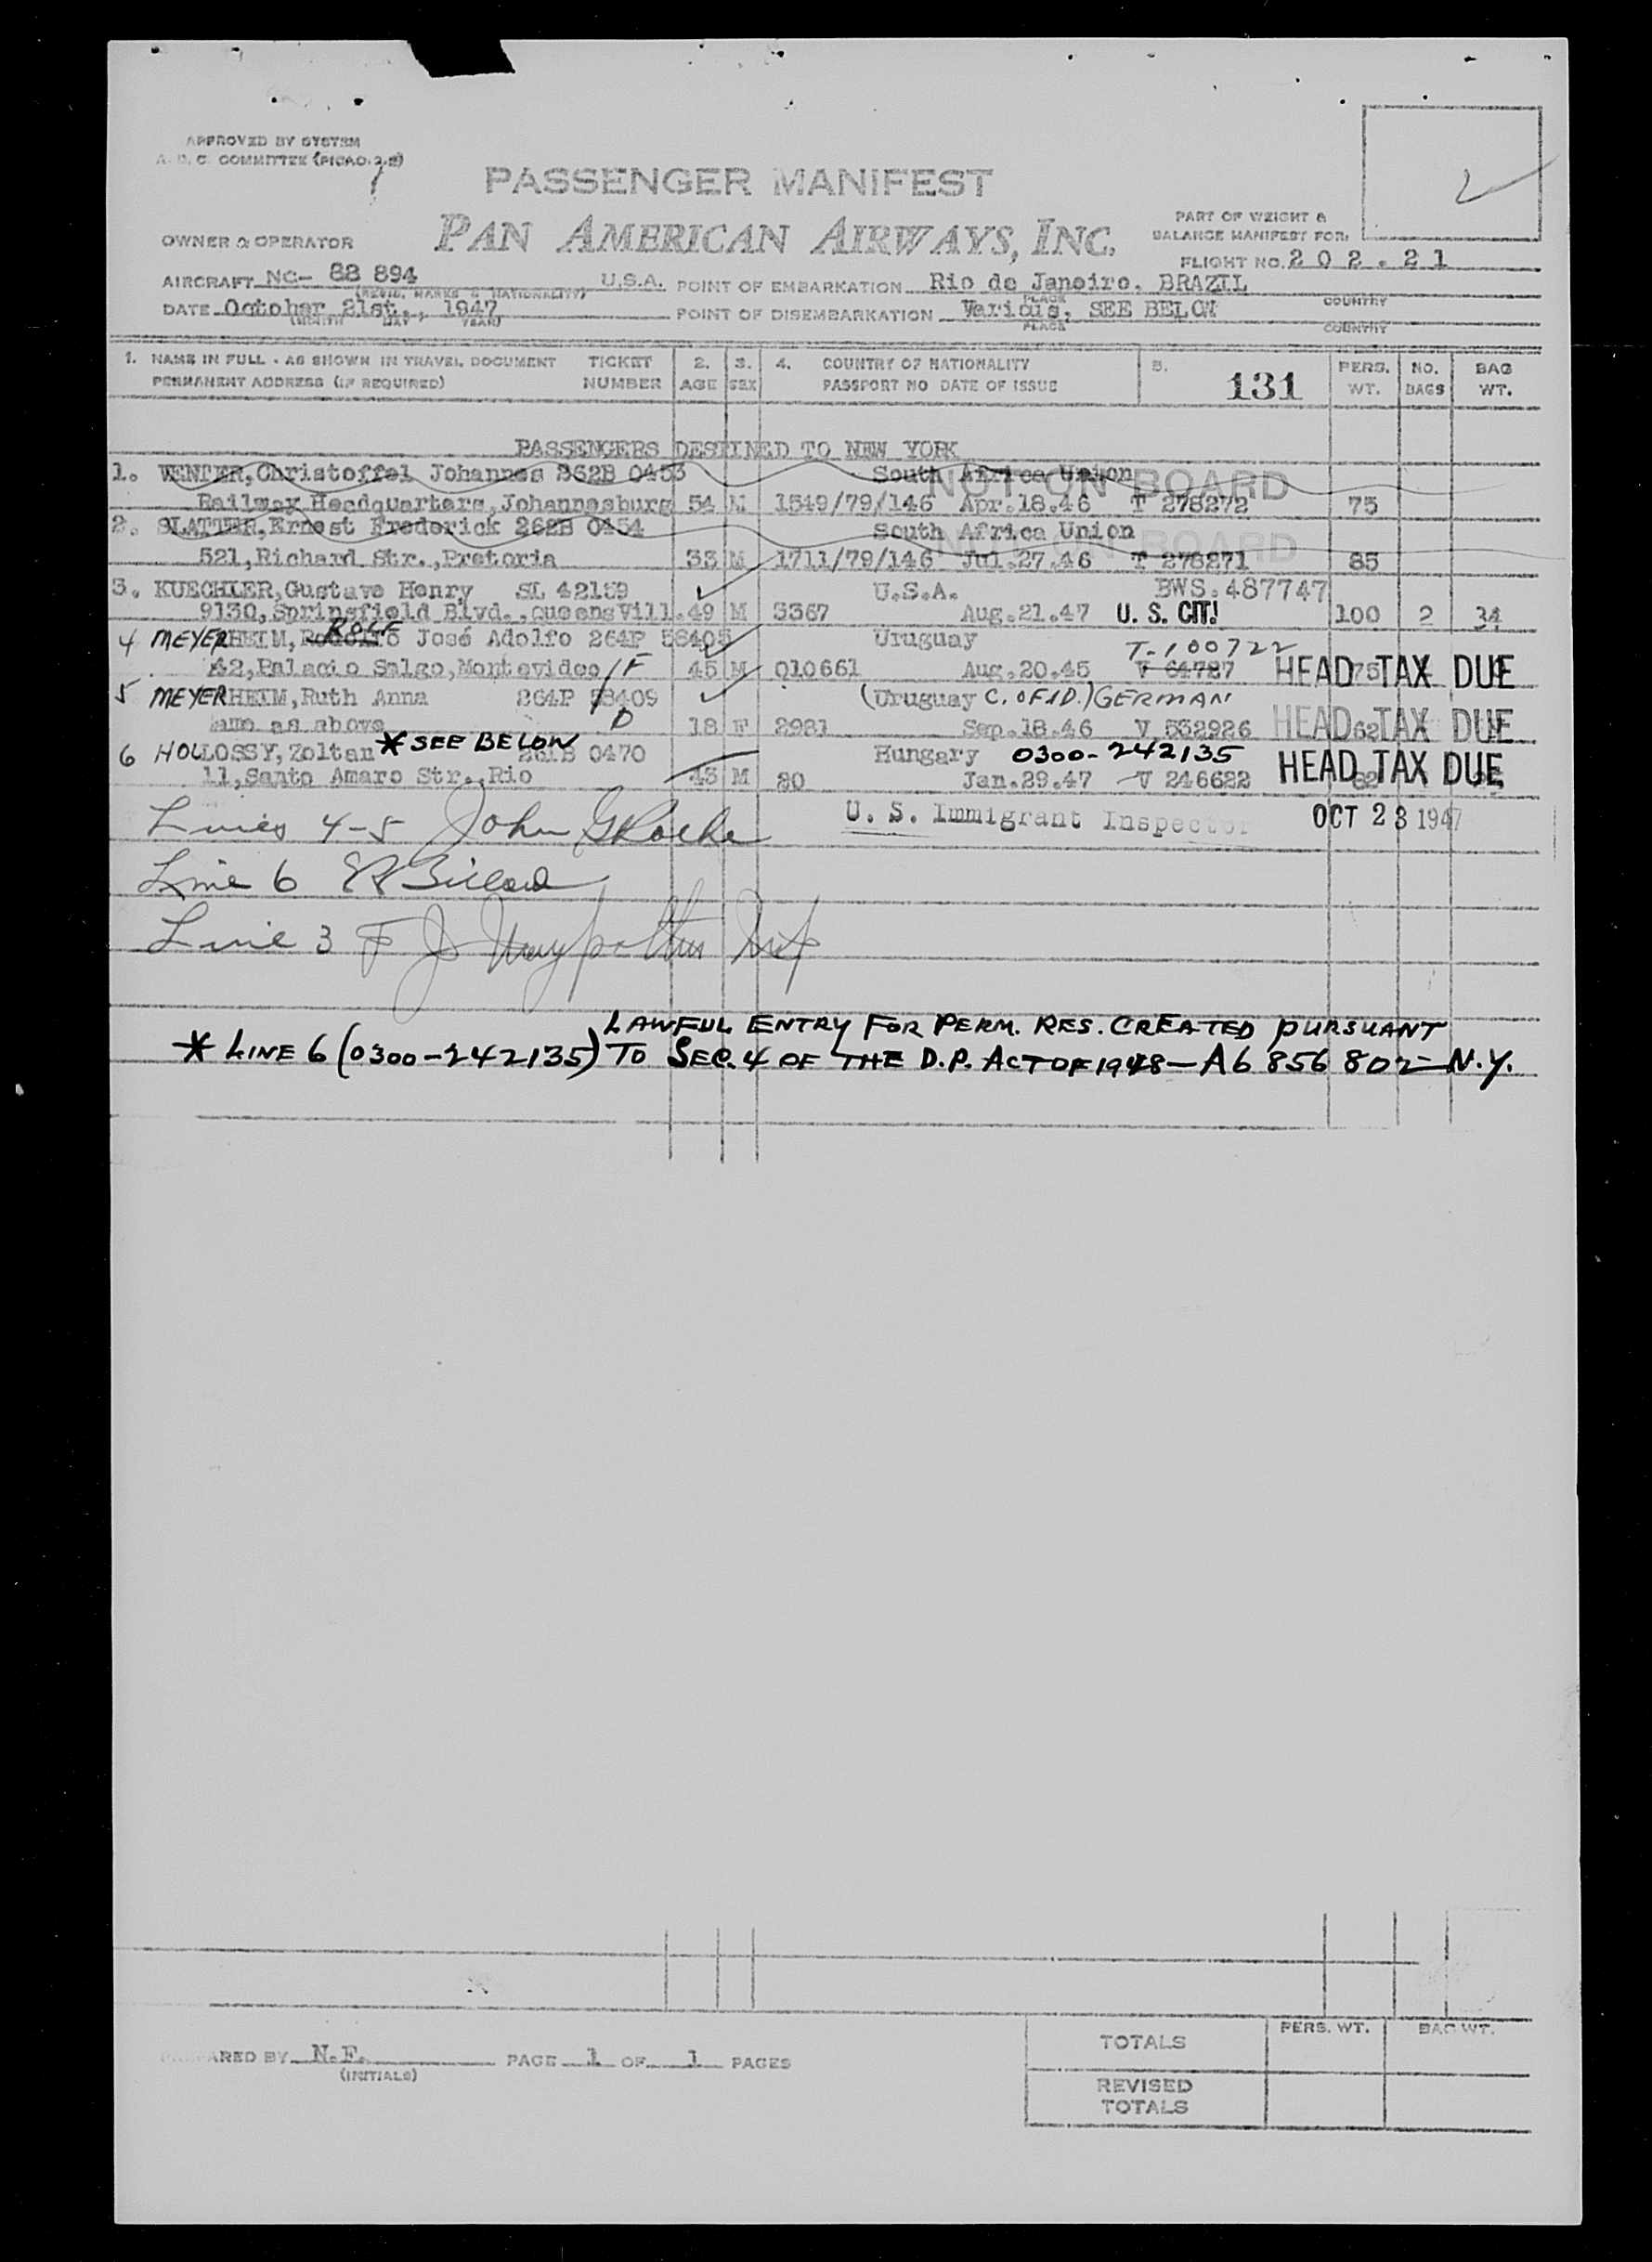 APPROVED BY SYSTEM
A. D. C. COMMITTEE (PICAO.2.2)
PASSENGER MANIFEST
PAN AMERICAN AIRWAYS, INC.
PART OF WEIGHT &
BALANCE MANIFEST FOR:
OWNER & OPERATOR
FLIGHT NO. 202.21
AIRCRAFT NC- 88 894 U.S.A. POINT OF EMBARKATION Rio de Janeiro, BRAZIL
(REGIS. MARKS & NATIONALITY) PLACE COUNTRY
DATE October 21st., 1947 POINT OF DISEMBARKATION Various, SEE BELOW
(MONTH DAY YEAR) PLACE COUNTRY
1. NAME IN FULL - AS SHOWN IN TRAVEL DOCUMENT TICKET 2. 3. 4. COUNTRY OF NATIONALITY 5. PERS. NO. BAG
PERMANENT ADDRESS (IF REQUIRED) NUMBER AGE SEX PASSPORT NO DATE OF ISSUE 131 WT. BAGS WT.
PASSENGERS DESTINED TO NEW YORK
1. VENTER, Christoffel Johannes 262B 0453 South Africa Union NOT ON BOARD
Railway Headquarters, Johannesburg 54 M 1549/79/146 Apr.18.46 T 278272 75
2. SLATTER, Ernest Frederick 262B 0454 South Africa Union NOT ON BOARD
521, Richard Str., Pretoria 33 M 1711/79/146 Jul.27.46 T 278271 85
3. KUECHLER, Gustave Henry SL 42159 U.S.A. BWS.487747
9130, Springfield Blvd., QueensVill. 49 M 3367 Aug.21.47 U. S. CIT! 100 2 34
ROLF
4 MEYERHEIM, Rodolfo José Adolfo 264P 58405 Uruguay T-100722
42, Palacio Salgo, Montevideo /F 45 M 010661 Aug.20.45 V 64787 75 HEAD TAX DUE
5 MEYERHEIM, Ruth Anna 264P 58409 (Uruguay C. OF ID.) GERMAN
same as above D 18 F 2981 Sep.18.46 V 532926 62 HEAD TAX DUE
6 HOLLOSSY, Zoltan * SEE BELOW 261B 0470 Hungary 0300-242135
11, Santo Amaro Str., Rio 43 M 80 Jan.29.47 V 246622 62 HEAD TAX DUE
Lines 4-5 John G Roche U. S. Immigrant Inspector OCT 23 1947
Line 6
Line 3 F J
LAWFUL ENTRY FOR PERM. RES. CREATED PURSUANT
* LINE 6 (0300-242135) TO SEC. 4 OF THE D.P. ACT OF 1948 - A6 856 802 - N.Y.
PREPARED BY N.F. PAGE 1 OF 1 PAGES
(INITIALS)
TOTALS PERS. WT. BAG WT.
REVISED
TOTALS